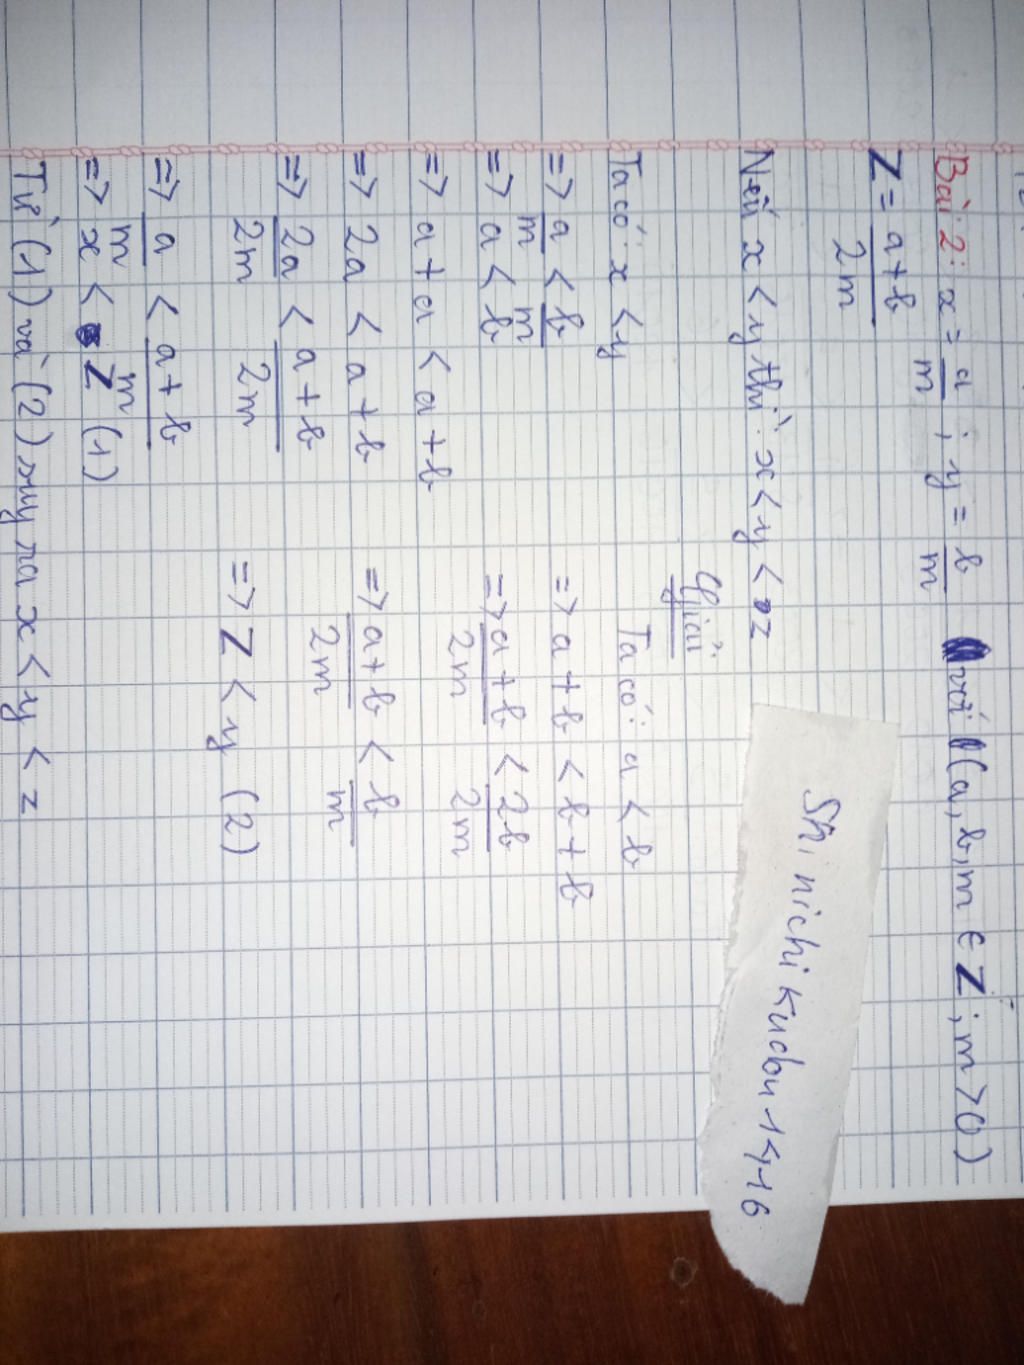 Bài 2: x = a/m ; y = b/m với (a, b, m ∈ Z ; m > 0)
Z = a+b/2m
Nếu x < y thì: x < y < z
Giải:
Ta có: x < y
=> a/m < b/m
=> a < b
=> a + a < a + b
=> 2a < a + b
=> 2a/2m < a + b/2m
=> a/m < a + b/m
=> x < Z (1)
Ta có: a < b
=> a + b < b + b
=> a + b/2m < 2b/2m
=> a + b/2m < b/m
=> Z < y (2)
Từ (1) và (2) suy ra x < y < z
Shinichi Kudou 1<-16